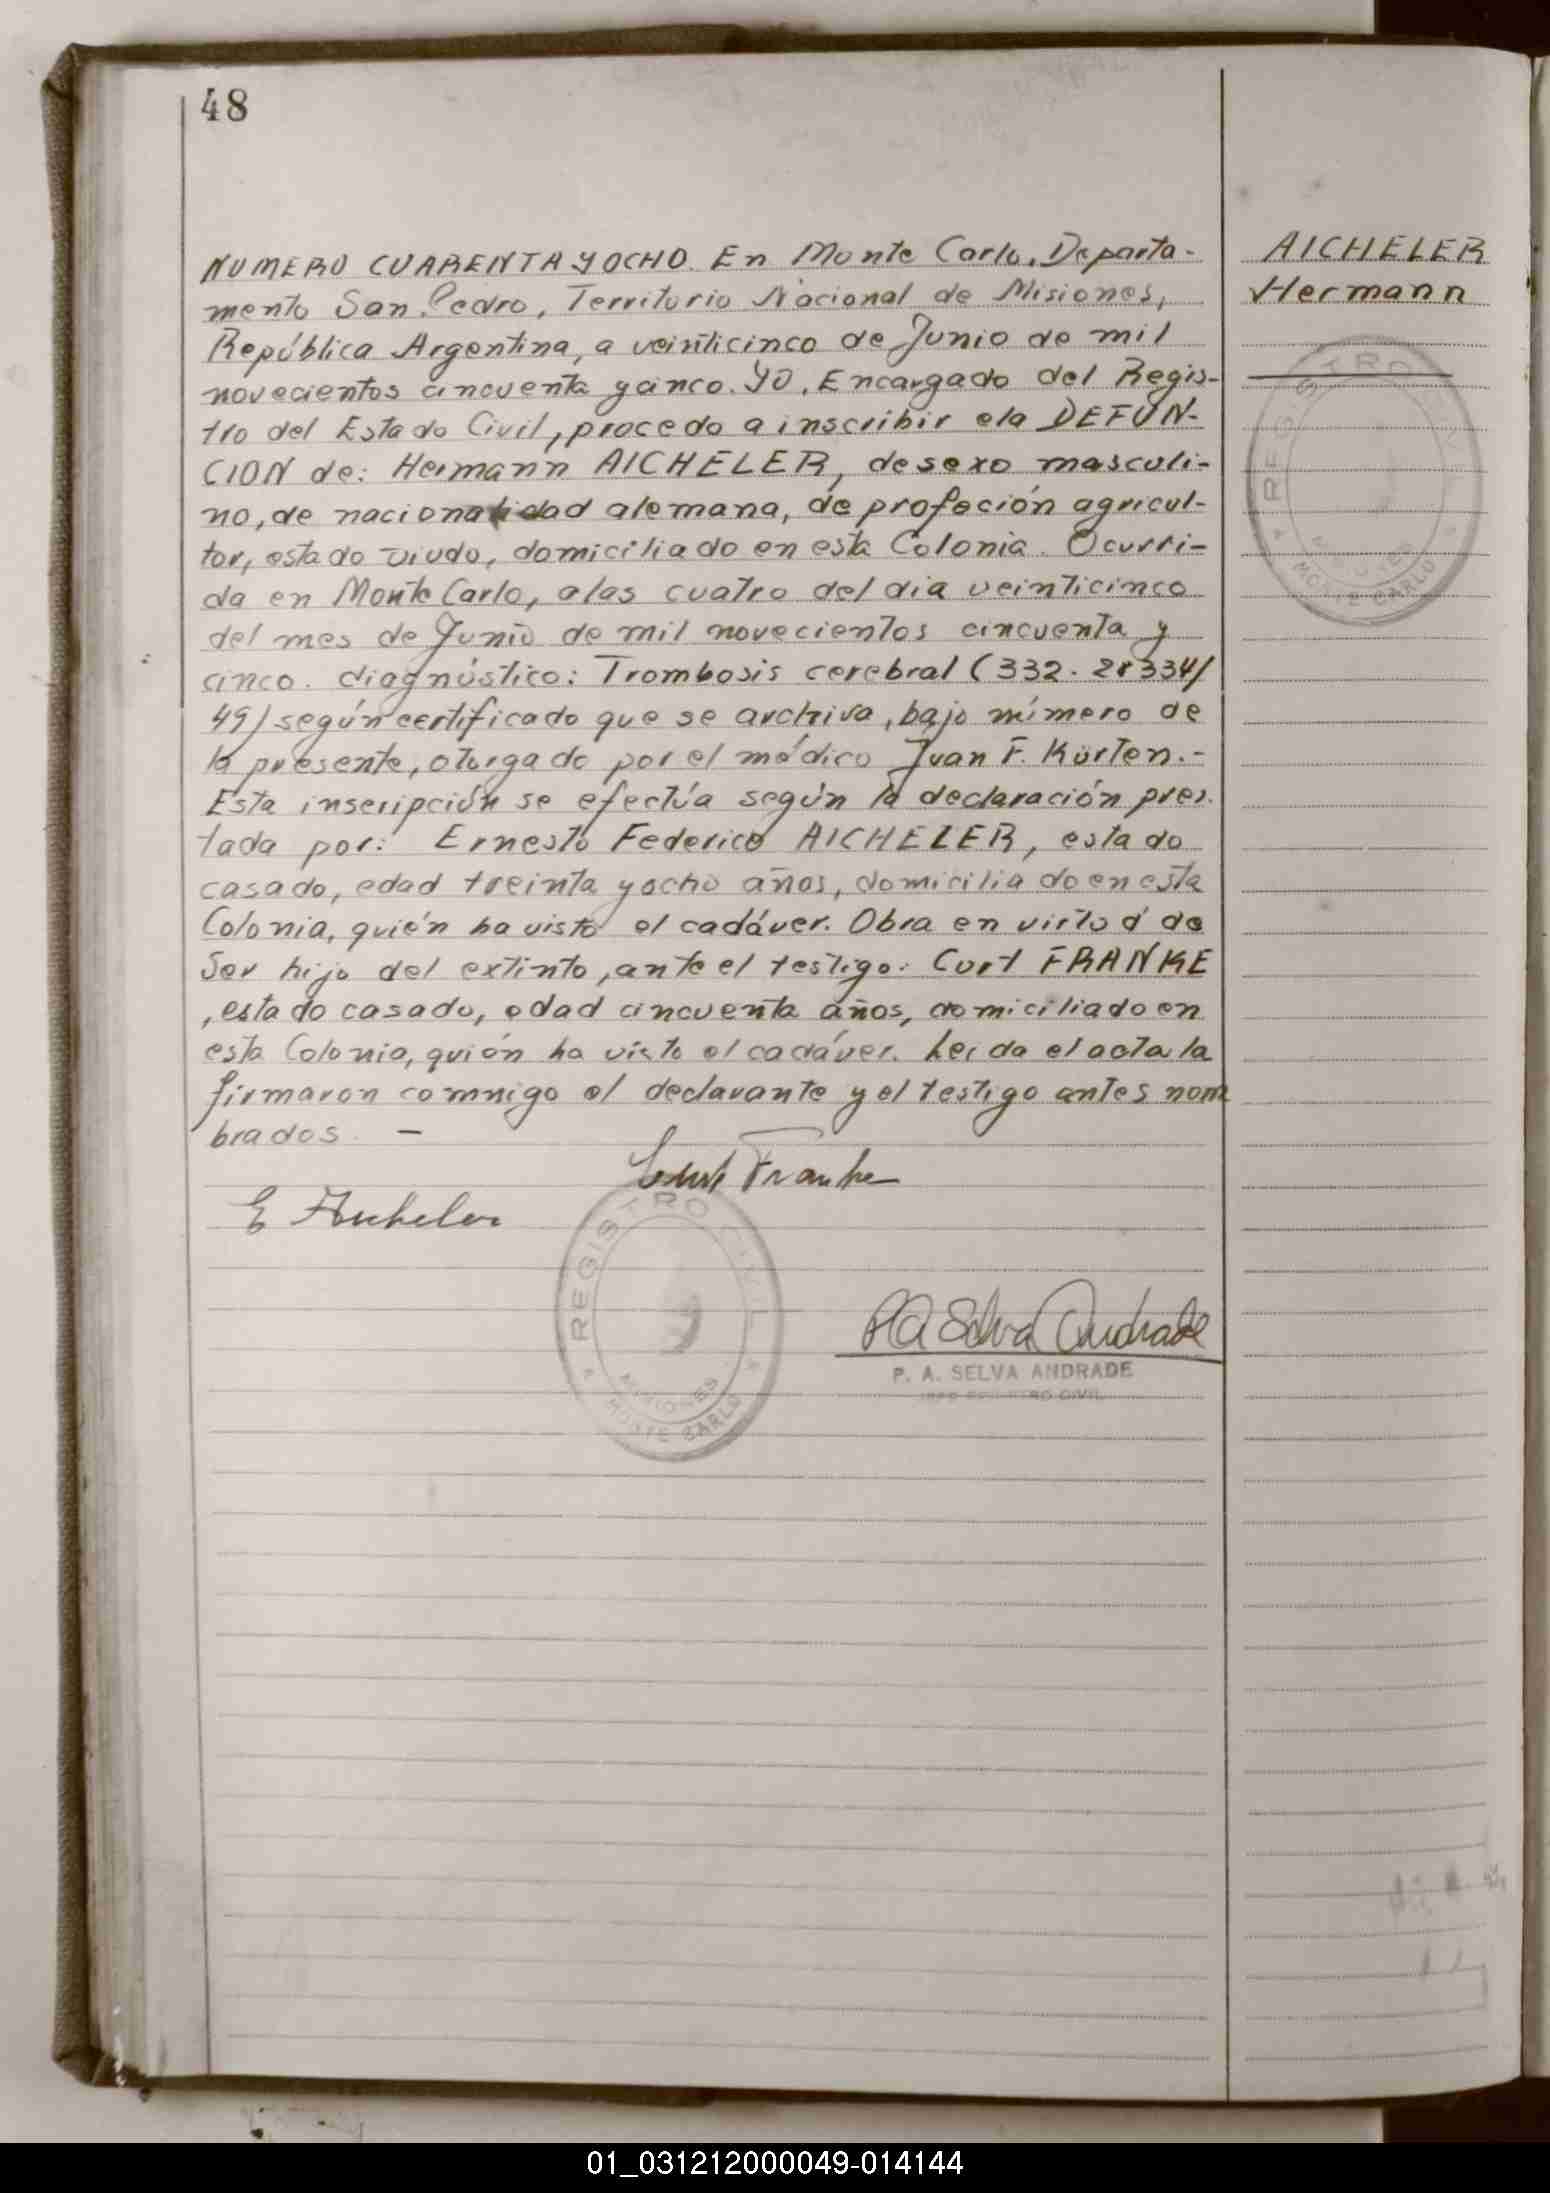 48
NUMERO CUARENTA Y OCHO. En Monte Carlo, Departa-
mento San Pedro, Territorio Nacional de Misiones,
República Argentina, a veinticinco de Junio de mil
novecientos cincuenta y cinco. YO, Encargado del Regis-
tro del Estado Civil, procedo a inscribir ela DEFUN-
CION de: Hermann AICHELER, de sexo masculi-
no, de nacionalidad alemana, de profeción agricul-
tor, estado viudo, domiciliado en esta Colonia. Ocurri-
da en Monte Carlo, a las cuatro del dia veinticinco
del mes de Junio de mil novecientos cincuenta y
cinco. diagnóstico: Trombosis cerebral (332. 28334/
49) según certificado que se archiva, bajo número de
la presente, otorgado por el médico Juan F. Kürten.-
Esta inscripción se efectúa según la declaración pres.
tada por: Ernesto Federico AICHELER, estado
casado, edad treinta y ocho años, domiciliado en esta
Colonia, quién ha visto el cadáver. Obra en virtud de
Ser hijo del extinto, ante el testigo: Curt FRANKE
, estado casado, edad cincuenta años, domiciliado en
esta Colonia, quién ha visto el cadáver. Leida el acta la
firmaron comnigo el declarante y el testigo antes nom
brados. -
Curt Franke
E Aicheler
PA Selva Andrade
P. A. SELVA ANDRADE
REGISTRO CIVIL
MISIONES
MONTE CARLO
AICHELER
Hermann
REGISTRO CIVIL
MISIONES
MONTE CARLO
01_031212000049-014144